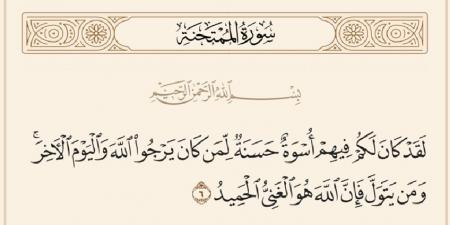 سُورَةُ المُمْتَحنَةِ
بِسْمِ ٱللَّهِ ٱلرَّحْمَٰنِ ٱلرَّحِيمِ
لَقَدْ كَانَ لَكُمْ فِيهِمْ أُسْوَةٌ حَسَنَةٌ لِّمَن كَانَ يَرْجُوا۟ ٱللَّهَ وَٱلْيَوْمَ ٱلْآخِرَ ۚ
وَمَن يَتَوَلَّ فَإِنَّ ٱللَّهَ هُوَ ٱلْغَنِىُّ ٱلْحَمِيدُ ٦